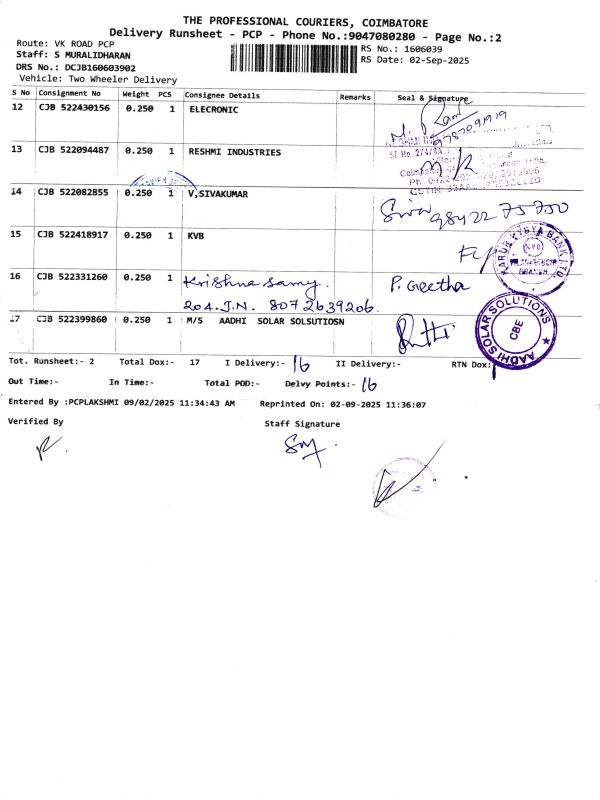 THE PROFESSIONAL COURIERS, COIMBATORE
Delivery Runsheet - PCP - Phone No.:9047080280 - Page No.:2
Route: VK ROAD PCP
Staff: S MURALIDHARAN
DRS No.: DCJB160603902
Vehicle: Two Wheeler Delivery
RS No.: 1606039
RS Date: 02-Sep-2025
S No Consignment No Weight PCS Consignee Details Remarks Seal & Signature
12 CJB 522430156 0.250 1 ELECRONIC
13 CJB 522094487 0.250 1 RESHMI INDUSTRIES
14 CJB 522082855 0.250 1 V,SIVAKUMAR
Siva 98422 75750
15 CJB 522418917 0.250 1 KVB
KARUR VYSYA BANK LTD.
KVB
BRANCH
16 CJB 522331260 0.250 1 Krishna Samy. P. Geetha
204.J.N. 8072639206.
17 CJB 522399860 0.250 1 M/S AADHI SOLAR SOLSUTIOSN
AADHI SOLAR SOLUTIONS
CBE
Tot. Runsheet:- 2 Total Dox:- 17 I Delivery:- 16 II Delivery:- RTN Dox:
Out Time:- In Time:- Total POD:- Delvy Points:- 16
Entered By :PCPLAKSHMI 09/02/2025 11:34:43 AM Reprinted On: 02-09-2025 11:36:07
Verified By Staff Signature